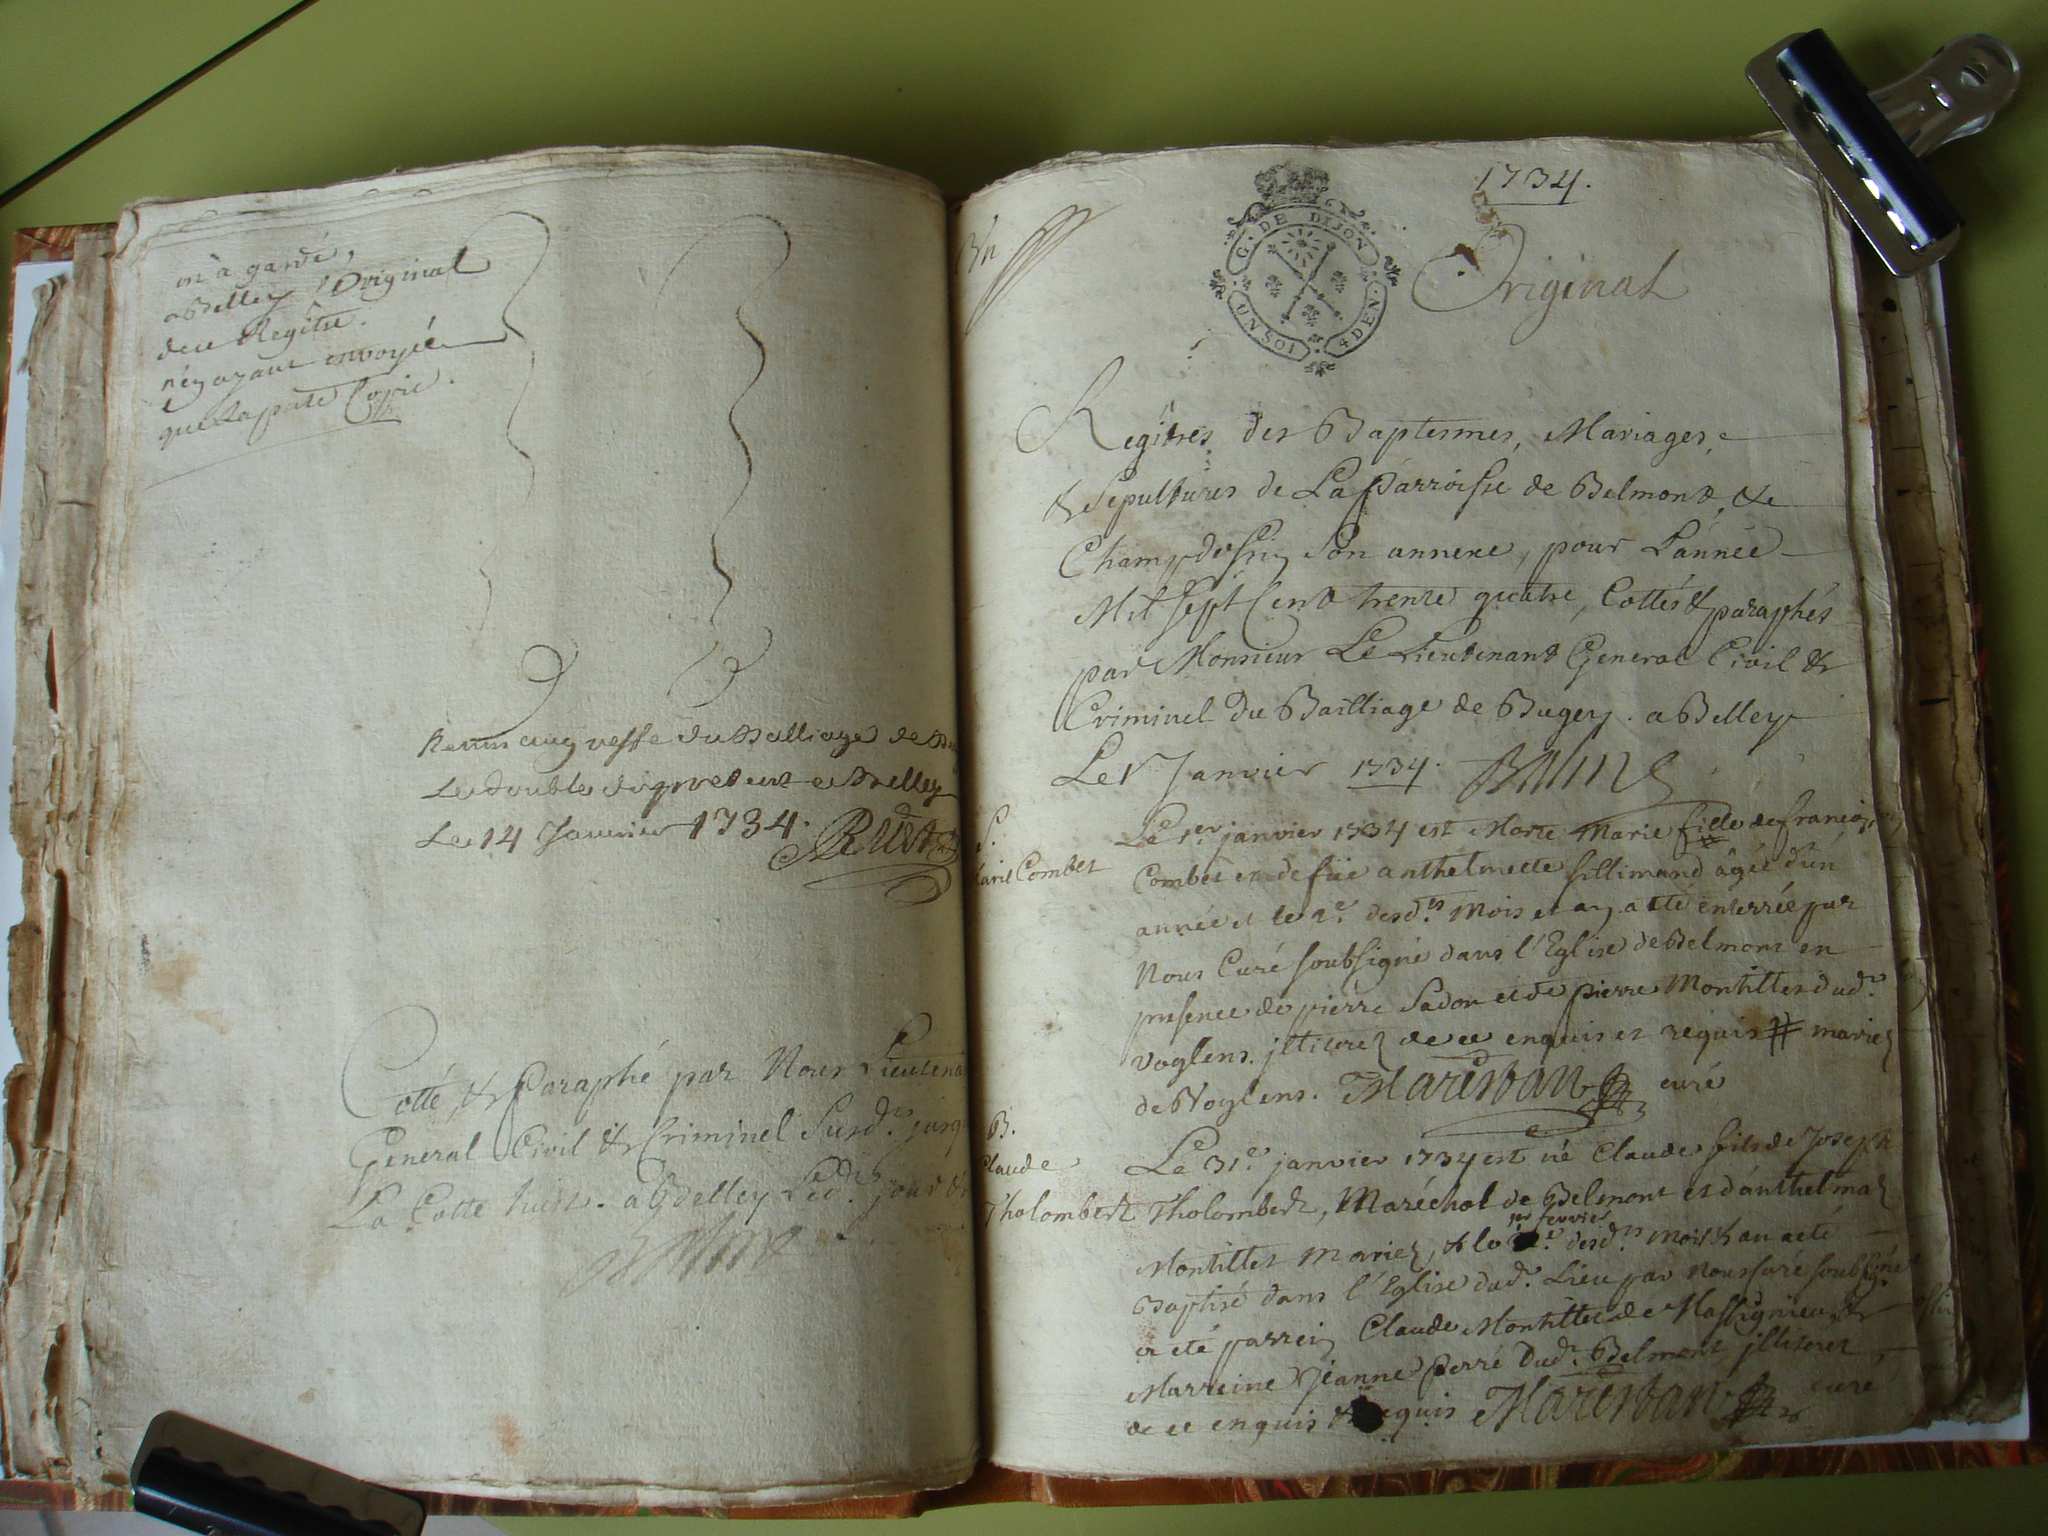 on a gardé,
a Belley l'Original
de ce Regître.
n'ey ayant envoyée
que La pate Copie.
Remis au greffe du Balliage de
Le double du presént a Belley
Le 14 Janvier 1734.
Cotté, & Paraphé par Nous Lieutena
General Civil & Criminel Susd. jusq
La Cotte huit. a Belley Led. jour &
Un
1734.
G. DE DIJON
UN SOL 4 DEN.
Original
Regîtres des Baptesmes, Mariages,
& Sepultures de La Parroisse de Belmont, &e
Champdossin Son annexe, pour L'année
Mil Sept Cent trente quatre, Cottés & paraphés
par Monsieur Le Lieutenant General Civil &
Criminel du Bailliage de Bugey. a Belley
Le 1 Janvier 1734.
S.
Marie Combet
Le 1er janvier 1734 est Morte Marie fille de francois
Combet et defûe anthelmette Sillimand âgée d'un
année et le 2e. desd.ts Mois et an a été enterrée par
Nous Curé soubsigné dans l'Eglise de Belmont en
presence de pierre Sadon et de pierre Montillet dud.
Voglens. jlliterez de ce enquis et requis # mariez
de Voglens. curé
B.
Claude
Tholombert
Le 31e. janvier 1734 est né Claude fils de Joseph
Tholombert, Maréchal de Belmont et d'anthelma
Montillet Mariez, & le 1er fevrier desd.ts mois & an a été
Baptisé dans l'Eglise dud. Lieu par Nous Curé soubsigné
a été parrein Claude Montillet de Massignieu &
Marreine jeanne perré dud. Belmont jlliterez,
de ce enquis & requis curé